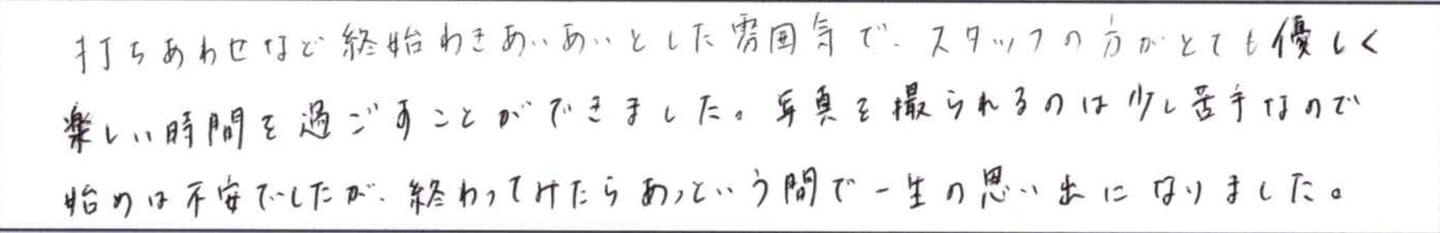 打ちあわせなど終始わきあいあいとした雰囲気で、スタッフの方がとても優しく
楽しい時間を過ごすことができました。写真を撮られるのは少し苦手なので
始めは不安でしたが、終わってみたらあっという間で一生の思い出になりました。